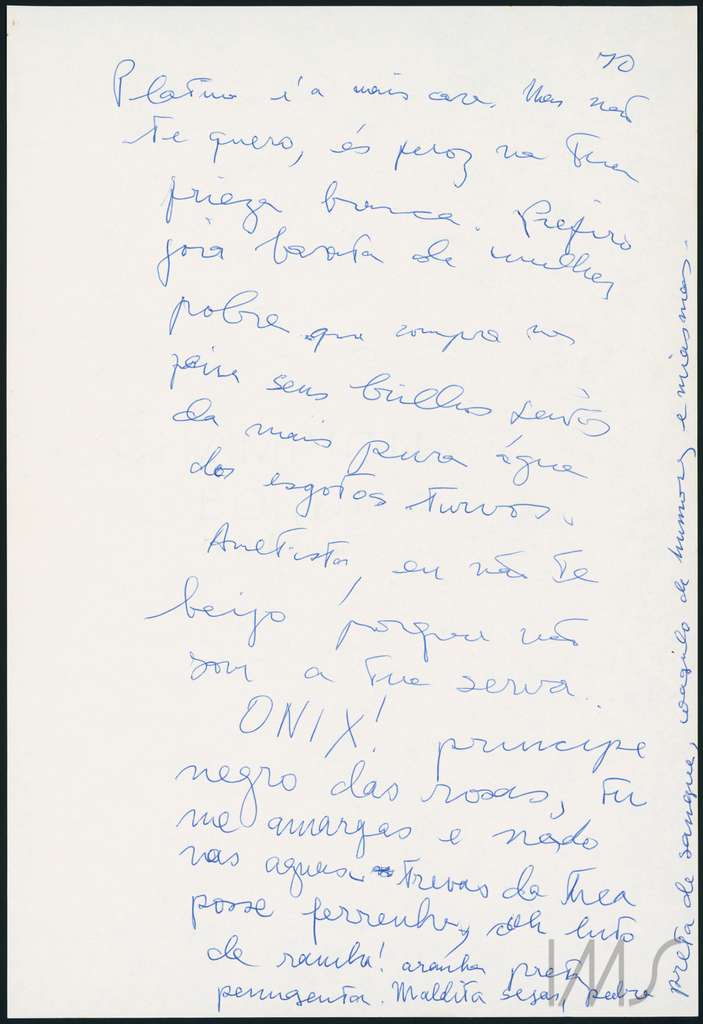 70
Platina é a mais cara. Mas não
te quero, és feroz na tua
frieza branca. Prefiro
joia barata de mulher
pobre que compra na
feira seus brilhos
da mais pura água
dos esgotos turvos.
Ametista, eu não te
beijo porque não
sou a tua serva.
ONIX! principe
negro das rosas, tu
me amargas e nado
nas aguas trevas da tua
posse ferrenha, luto
de rainha! aranha preta
penugenta. Maldita sejas, pedra
preta de sangue, coagulo de humores e miasmas.
IMS